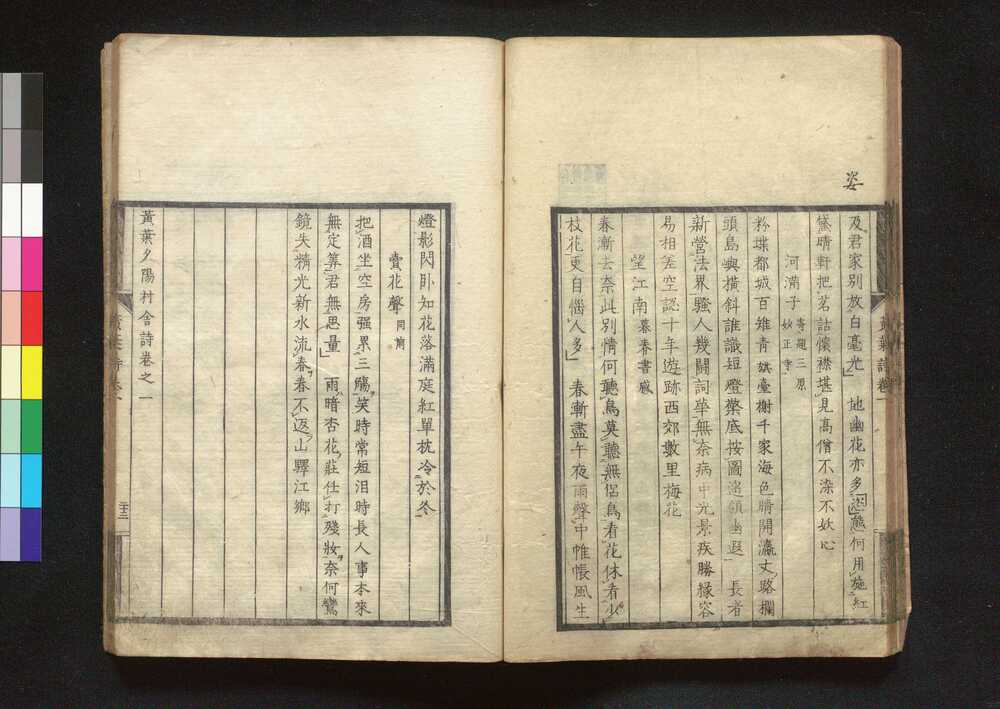 姿
及君家別放白毫光」　地幽花亦多恣態何用施紅
黛晴軒把茗話懷襟堪見高僧不染不妖心
河滿子 寄題三原妙正寺
粉堞都城百雉青臺榭千家海色晴開瀛丈略欄
頭島嶼橫斜誰識短燈檠底按圖遙領幽遐　長者
新營法界騷人幾鬪詞華無奈病中光景疾勝緣容
易相差空認十年遊跡西郊數里梅花
望江南 暮春書感
春漸去奈此別情何聽鳥莫聽無侶鳥看花休看少
枝花更自惱人多」　春漸盡午夜雨聲中帷帳風生
燈影閃卧知花落滿庭紅單枕冷於冬
賣花聲 同前
把酒坐空房强累三觴笑時常短泪時長人事本來
無定筭君無思量」　雨暗杏花莊仕打殘妝奈何鸞
鏡失精光新水流春春不返山驛江鄉
黃葉夕陽村舍詩卷之一